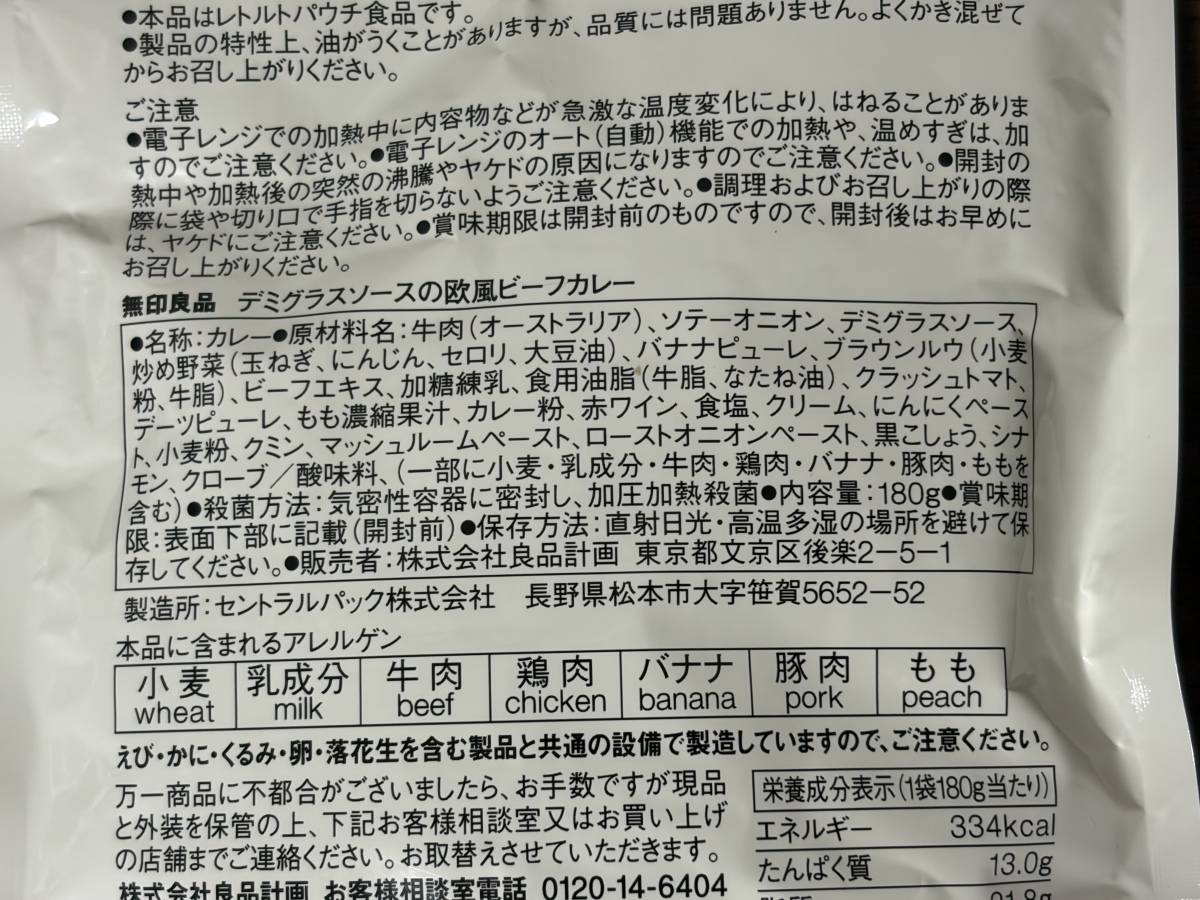 ●本品はレトルトパウチ食品です。
●製品の特性上、油がうくことがありますが、品質には問題ありません。よくかき混ぜて
からお召し上がりください。
ご注意
●電子レンジでの加熱中に内容物などが急激な温度変化により、はねることがありま
すのでご注意ください。●電子レンジのオート(自動)機能での加熱や、温めすぎは、加
熱中や加熱後の突然の沸騰やヤケドの原因になりますのでご注意ください。●開封の
際に袋や切り口で手指を切らないようご注意ください。●調理およびお召し上がりの際
は、ヤケドにご注意ください。●賞味期限は開封前のものですので、開封後はお早めに
お召し上がりください。
無印良品 デミグラスソースの欧風ビーフカレー
●名称:カレー●原材料名:牛肉(オーストラリア)、ソテーオニオン、デミグラスソース、
炒め野菜(玉ねぎ、にんじん、セロリ、大豆油)、バナナピューレ、ブラウンルウ(小麦
粉、牛脂)、ビーフエキス、加糖練乳、食用油脂(牛脂、なたね油)、クラッシュトマト、
デーツピューレ、もも濃縮果汁、カレー粉、赤ワイン、食塩、クリーム、にんにくペース
ト、小麦粉、クミン、マッシュルームペースト、ローストオニオンペースト、黒こしょう、シナ
モン、クローブ/酸味料、(一部に小麦・乳成分・牛肉・鶏肉・バナナ・豚肉・ももを
含む)●殺菌方法:気密性容器に密封し、加圧加熱殺菌●内容量:180g●賞味期
限:表面下部に記載(開封前)●保存方法:直射日光・高温多湿の場所を避けて保
存してください。●販売者:株式会社良品計画 東京都文京区後楽2-5-1
製造所:セントラルパック株式会社 長野県松本市大字笹賀5652-52
本品に含まれるアレルゲン
小麦 乳成分 牛肉 鶏肉 バナナ 豚肉 もも
wheat milk beef chicken banana pork peach
えび・かに・くるみ・卵・落花生を含む製品と共通の設備で製造していますので、ご注意ください。
万一商品に不都合がございましたら、お手数ですが現品
と外装を保管の上、下記お客様相談室又はお買い上げ
の店舗までご連絡ください。お取替えさせていただきます。
株式会社良品計画 お客様相談室電話 0120-14-6404
栄養成分表示(1袋180g当たり)
エネルギー 334kcal
たんぱく質 13.0g